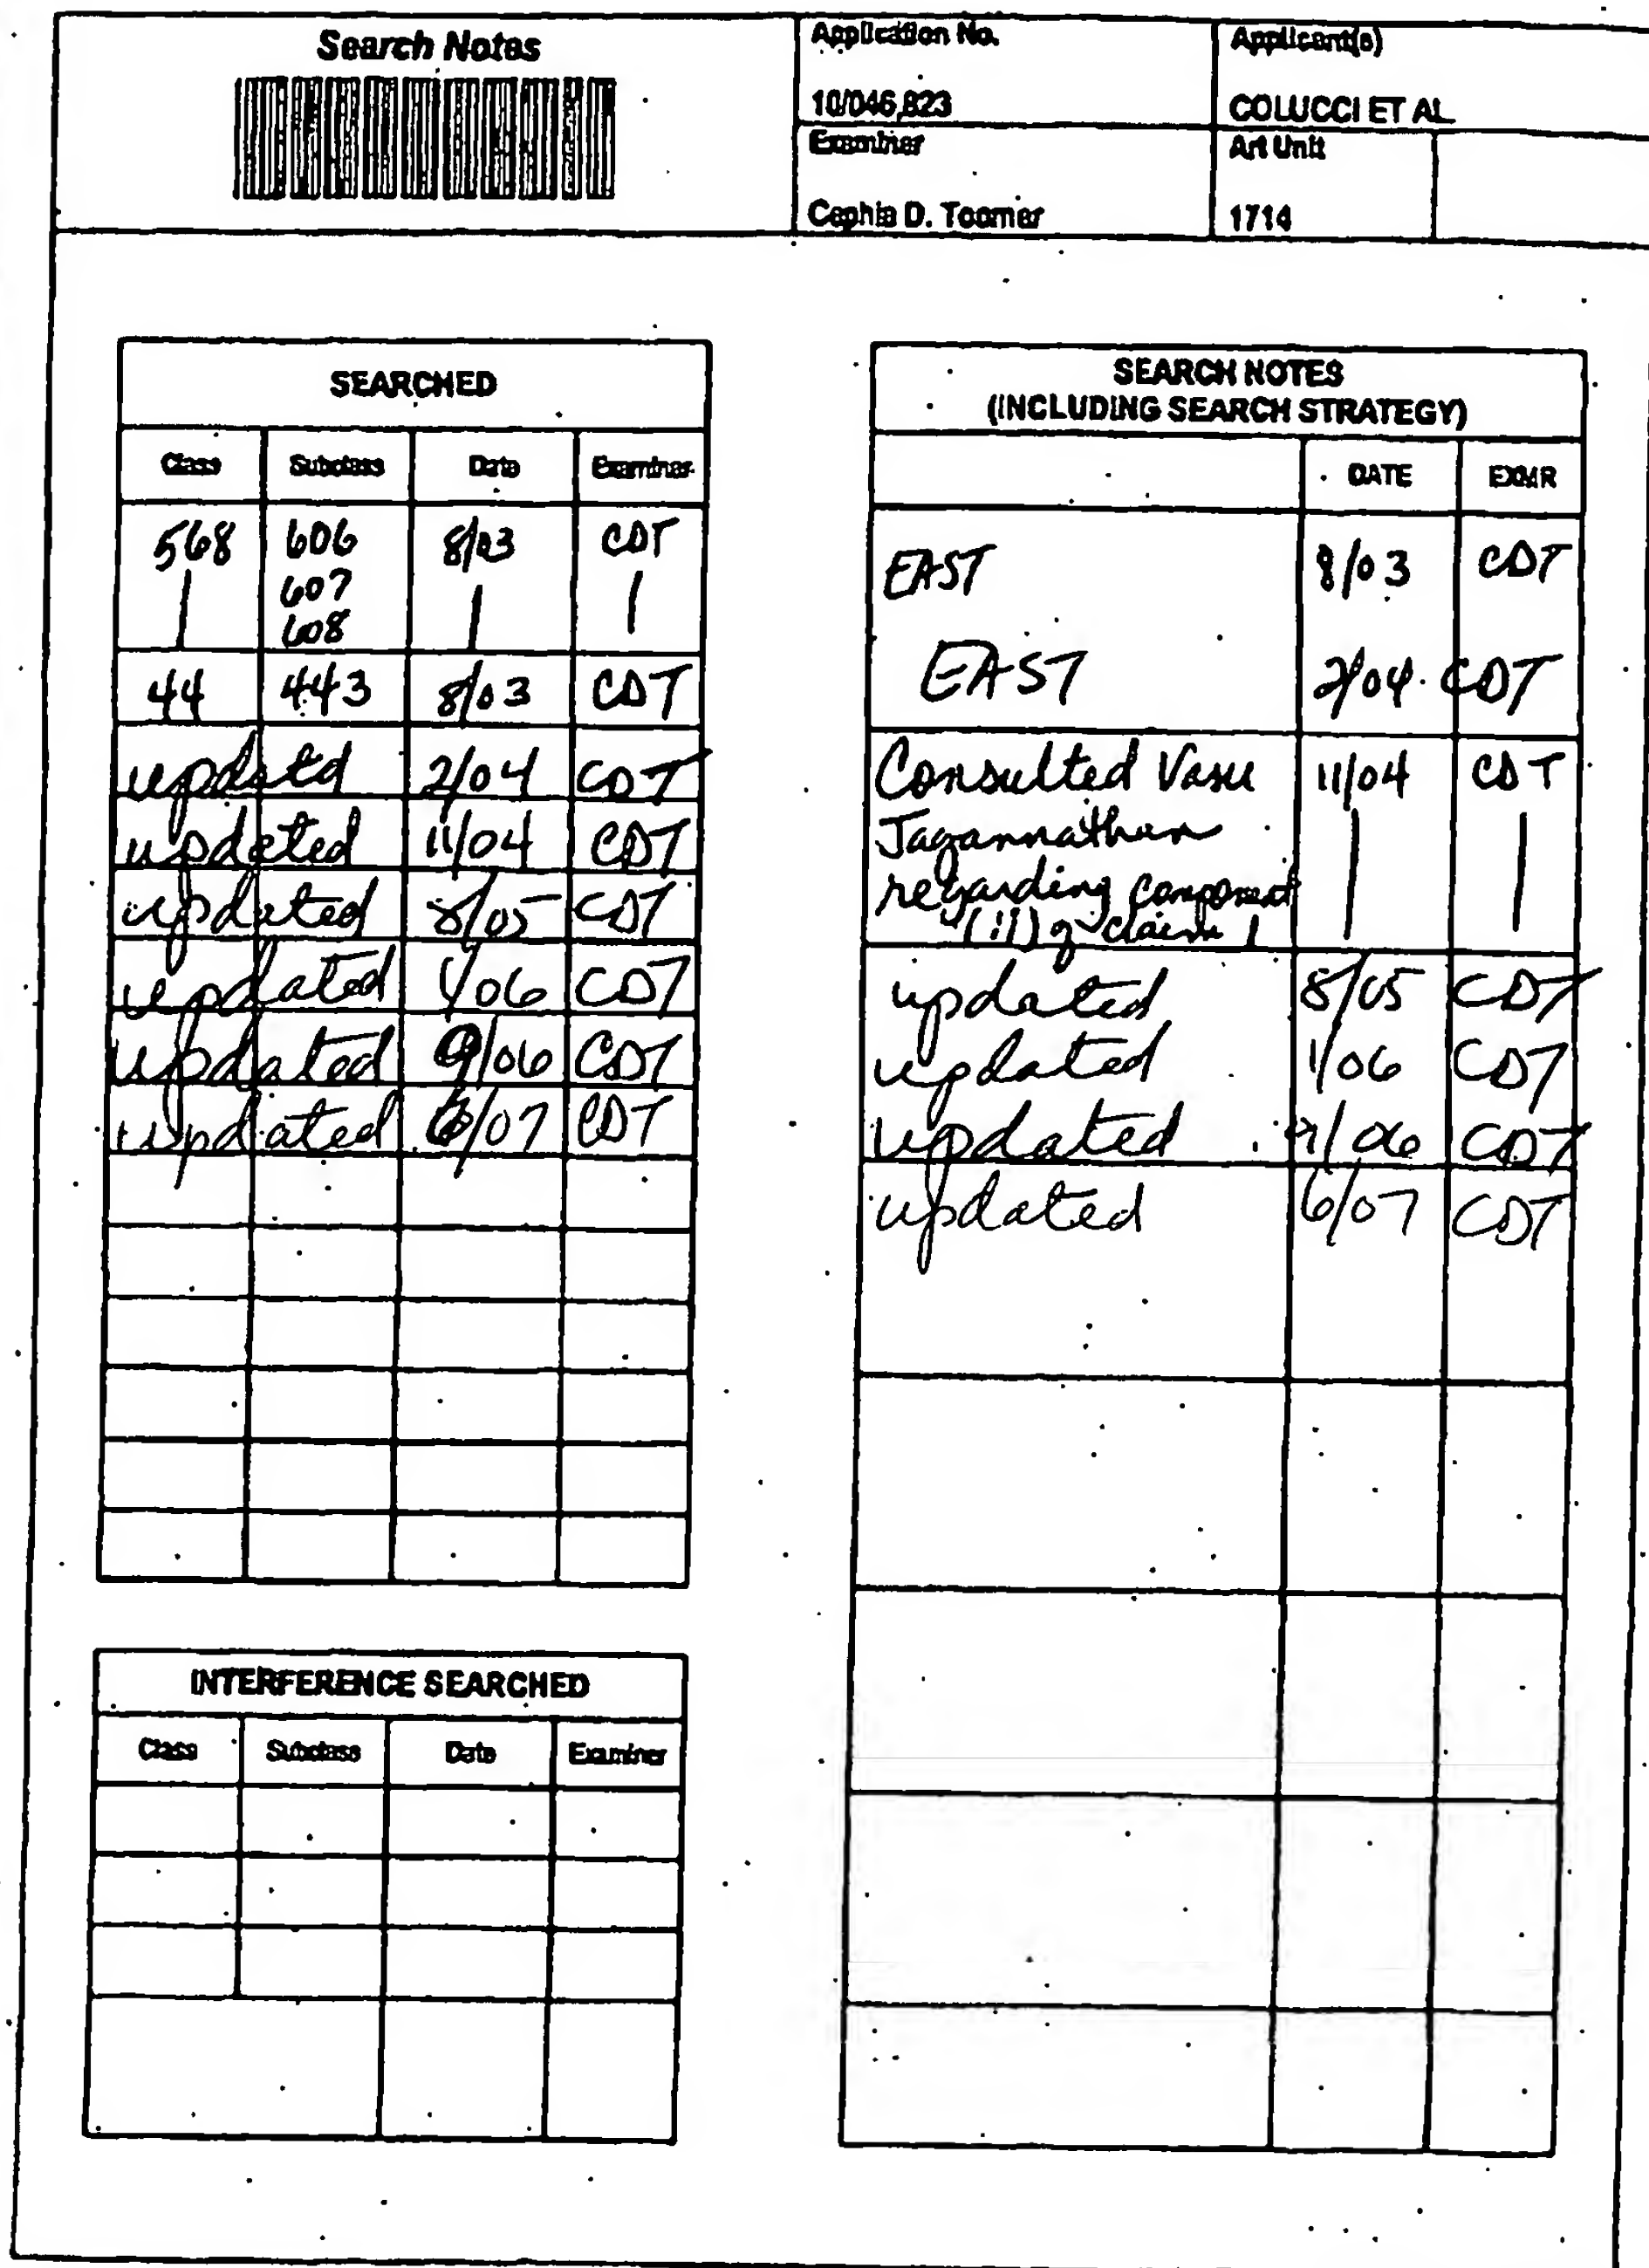 Search Notes
Application No.
Applicant(s)
10/046,823
COLUCCI ET AL.
Examiner
Art Unit
Cephia D. Toomer
1714
SEARCHED
Class Subclass Date Examiner
568 606 8/03 CDT
| 607 | |
608
44 443 8/03 CDT
updatd 2/04 CDT
updated 11/04 CDT
updated 8/05 CDT
updated 1/06 CDT
updated 9/06 CDT
updated 6/07 CDT
INTERFERENCE SEARCHED
Class Subclass Date Examiner
SEARCH NOTES
(INCLUDING SEARCH STRATEGY)
DATE EXMR
EAST 8/03 CDT
EAST 2/04 CDT
Consulted Vasu 11/04 CDT
Jagannathan | |
regarding component
(ii) of claim 1
updated 8/05 CDT
updated 1/06 CDT
updated 9/06 CDT
updated 6/07 CDT